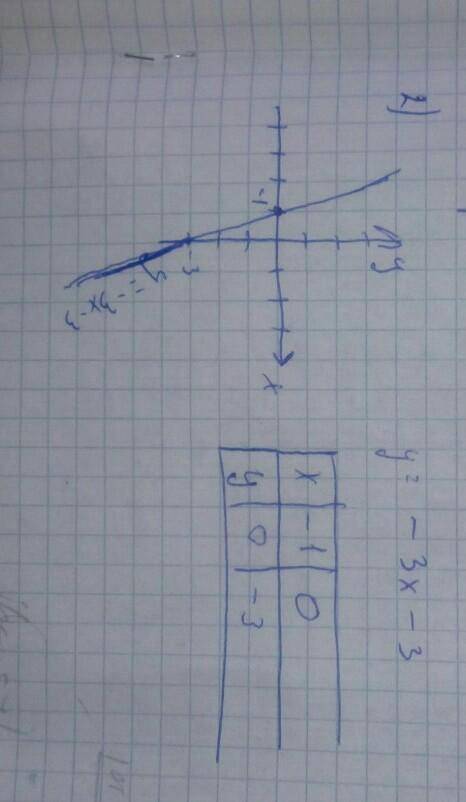 2)
y = -3x - 3
y
-1
x
-3
y = -3x-3
x -1 0
y 0 -3